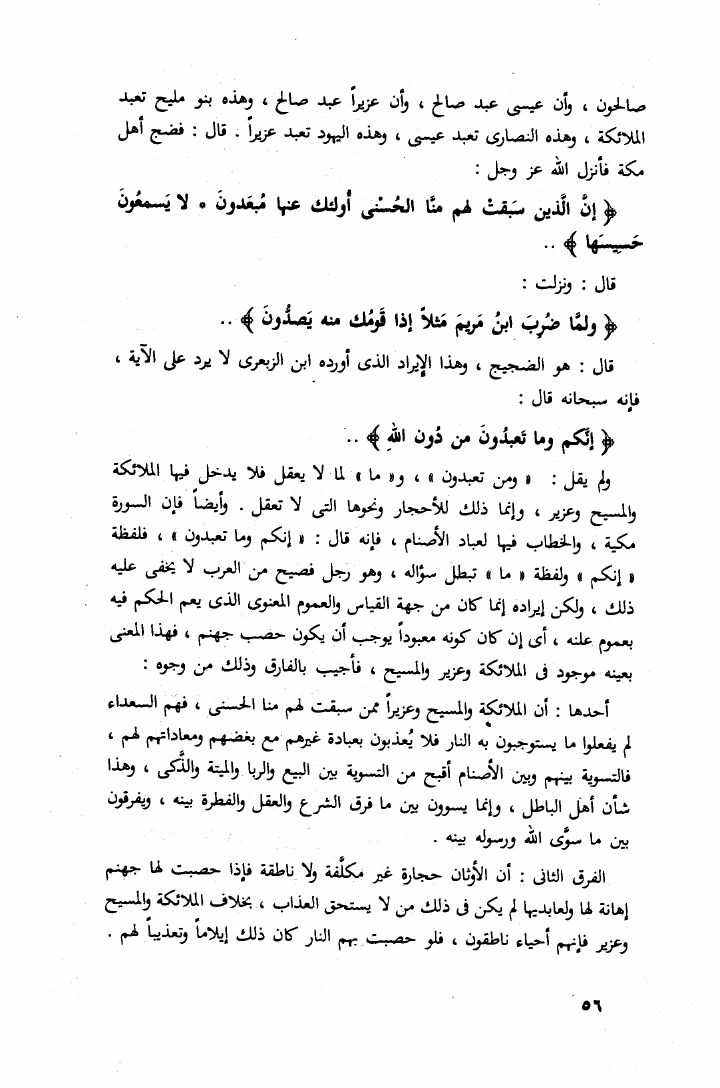 صالحون ، وأن عيسى عبد صالح ، وأن عزيراً عبد صالح ، وهذه بنو مليح تعبد
الملائكة ، وهذه النصارى تعبد عيسى ، وهذه اليهود تعبد عزيراً . قال : فضج أهل
مكة فأنزل الله عز وجل :
﴿ إنَّ الَّذين سَبقتْ لهم منَّا الحُسْنى أُولئك عنها مُبعَدونَ * لا يَسمعُونَ
حَسِيسَها ﴾ ..
قال : ونزلت :
﴿ ولمَّا ضُرِبَ ابنُ مَريمَ مَثلاً إذا قَومُك منه يَصدُّونَ ﴾ ..
قال : هو الضجيج ، وهذا الإيراد الذى أورده ابن الزبعرى لا يرد على الآية ،
فإنه سبحانه قال :
﴿ إنَّكم وما تَعبدُونَ من دُون اللهِ ﴾ ..
ولم يقل : « ومن تعبدون » ، و« ما » لما لا يعقل فلا يدخل فيها الملائكة
والمسيح وعزير ، وإنما ذلك للأحجار ونحوها التى لا تعقل . وأيضاً فإن السورة
مكية ، والخطاب فيها لعباد الأصنام ، فإنه قال : « إنكم وما تعبدون » ، فلفظة
« إنكم » ولفظة « ما » تبطل سؤاله ، وهو رجل فصيح من العرب لا يخفى عليه
ذلك ، ولكن إيراده إنما كان من جهة القياس والعموم المعنوى الذى يعم الحكم فيه
بعموم علته ، أى إن كان كونه معبوداً يوجب أن يكون حصب جهنم ، فهذا المعنى
بعينه موجود فى الملائكة وعزير والمسيح ، فأجيب بالفارق وذلك من وجوه :
أحدها : أن الملائكة والمسيح وعزيراً ممن سبقت لهم منا الحسنى ، فهم السعداء
لم يفعلوا ما يستوجبون به النار فلا يُعذبون بعبادة غيرهم مع بغضهم ومعاداتهم لهم ،
فالتسوية بينهم وبين الأصنام أقبح من التسوية بين البيع والربا والميتة والذَّكى ، وهذا
شأن أهل الباطل ، وإنما يسوون بين ما فرق الشرع والعقل والفطرة بينه ، ويفرقون
بين ما سوَّى الله ورسوله بينه .
الفرق الثانى : أن الأوثان حجارة غير مكلَّفة ولا ناطقة فإذا حصبت لها جهنم
إهانة لها ولعابديها لم يكن فى ذلك من لا يستحق العذاب ، بخلاف الملائكة والمسيح
وعزير فإنهم أحياء ناطقون ، فلو حصبت بهم النار كان ذلك إيلاماً وتعذيباً لهم .
٥٦